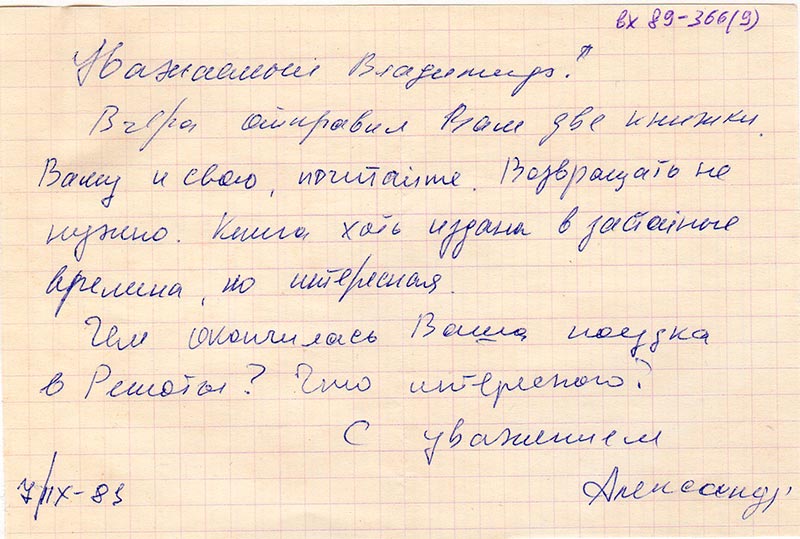 вх 89-366(9)
Уважаемый Владимир!
Вчера отправил Вам две книжки.
Вашу и свою, почитайте. Возвращать не
нужно. Книга хоть издана в застойные
времена, но интересная.
Чем окончилась Ваша поездка
в Решоты? Что интересного?
С уважением
Александр
7/IX-89